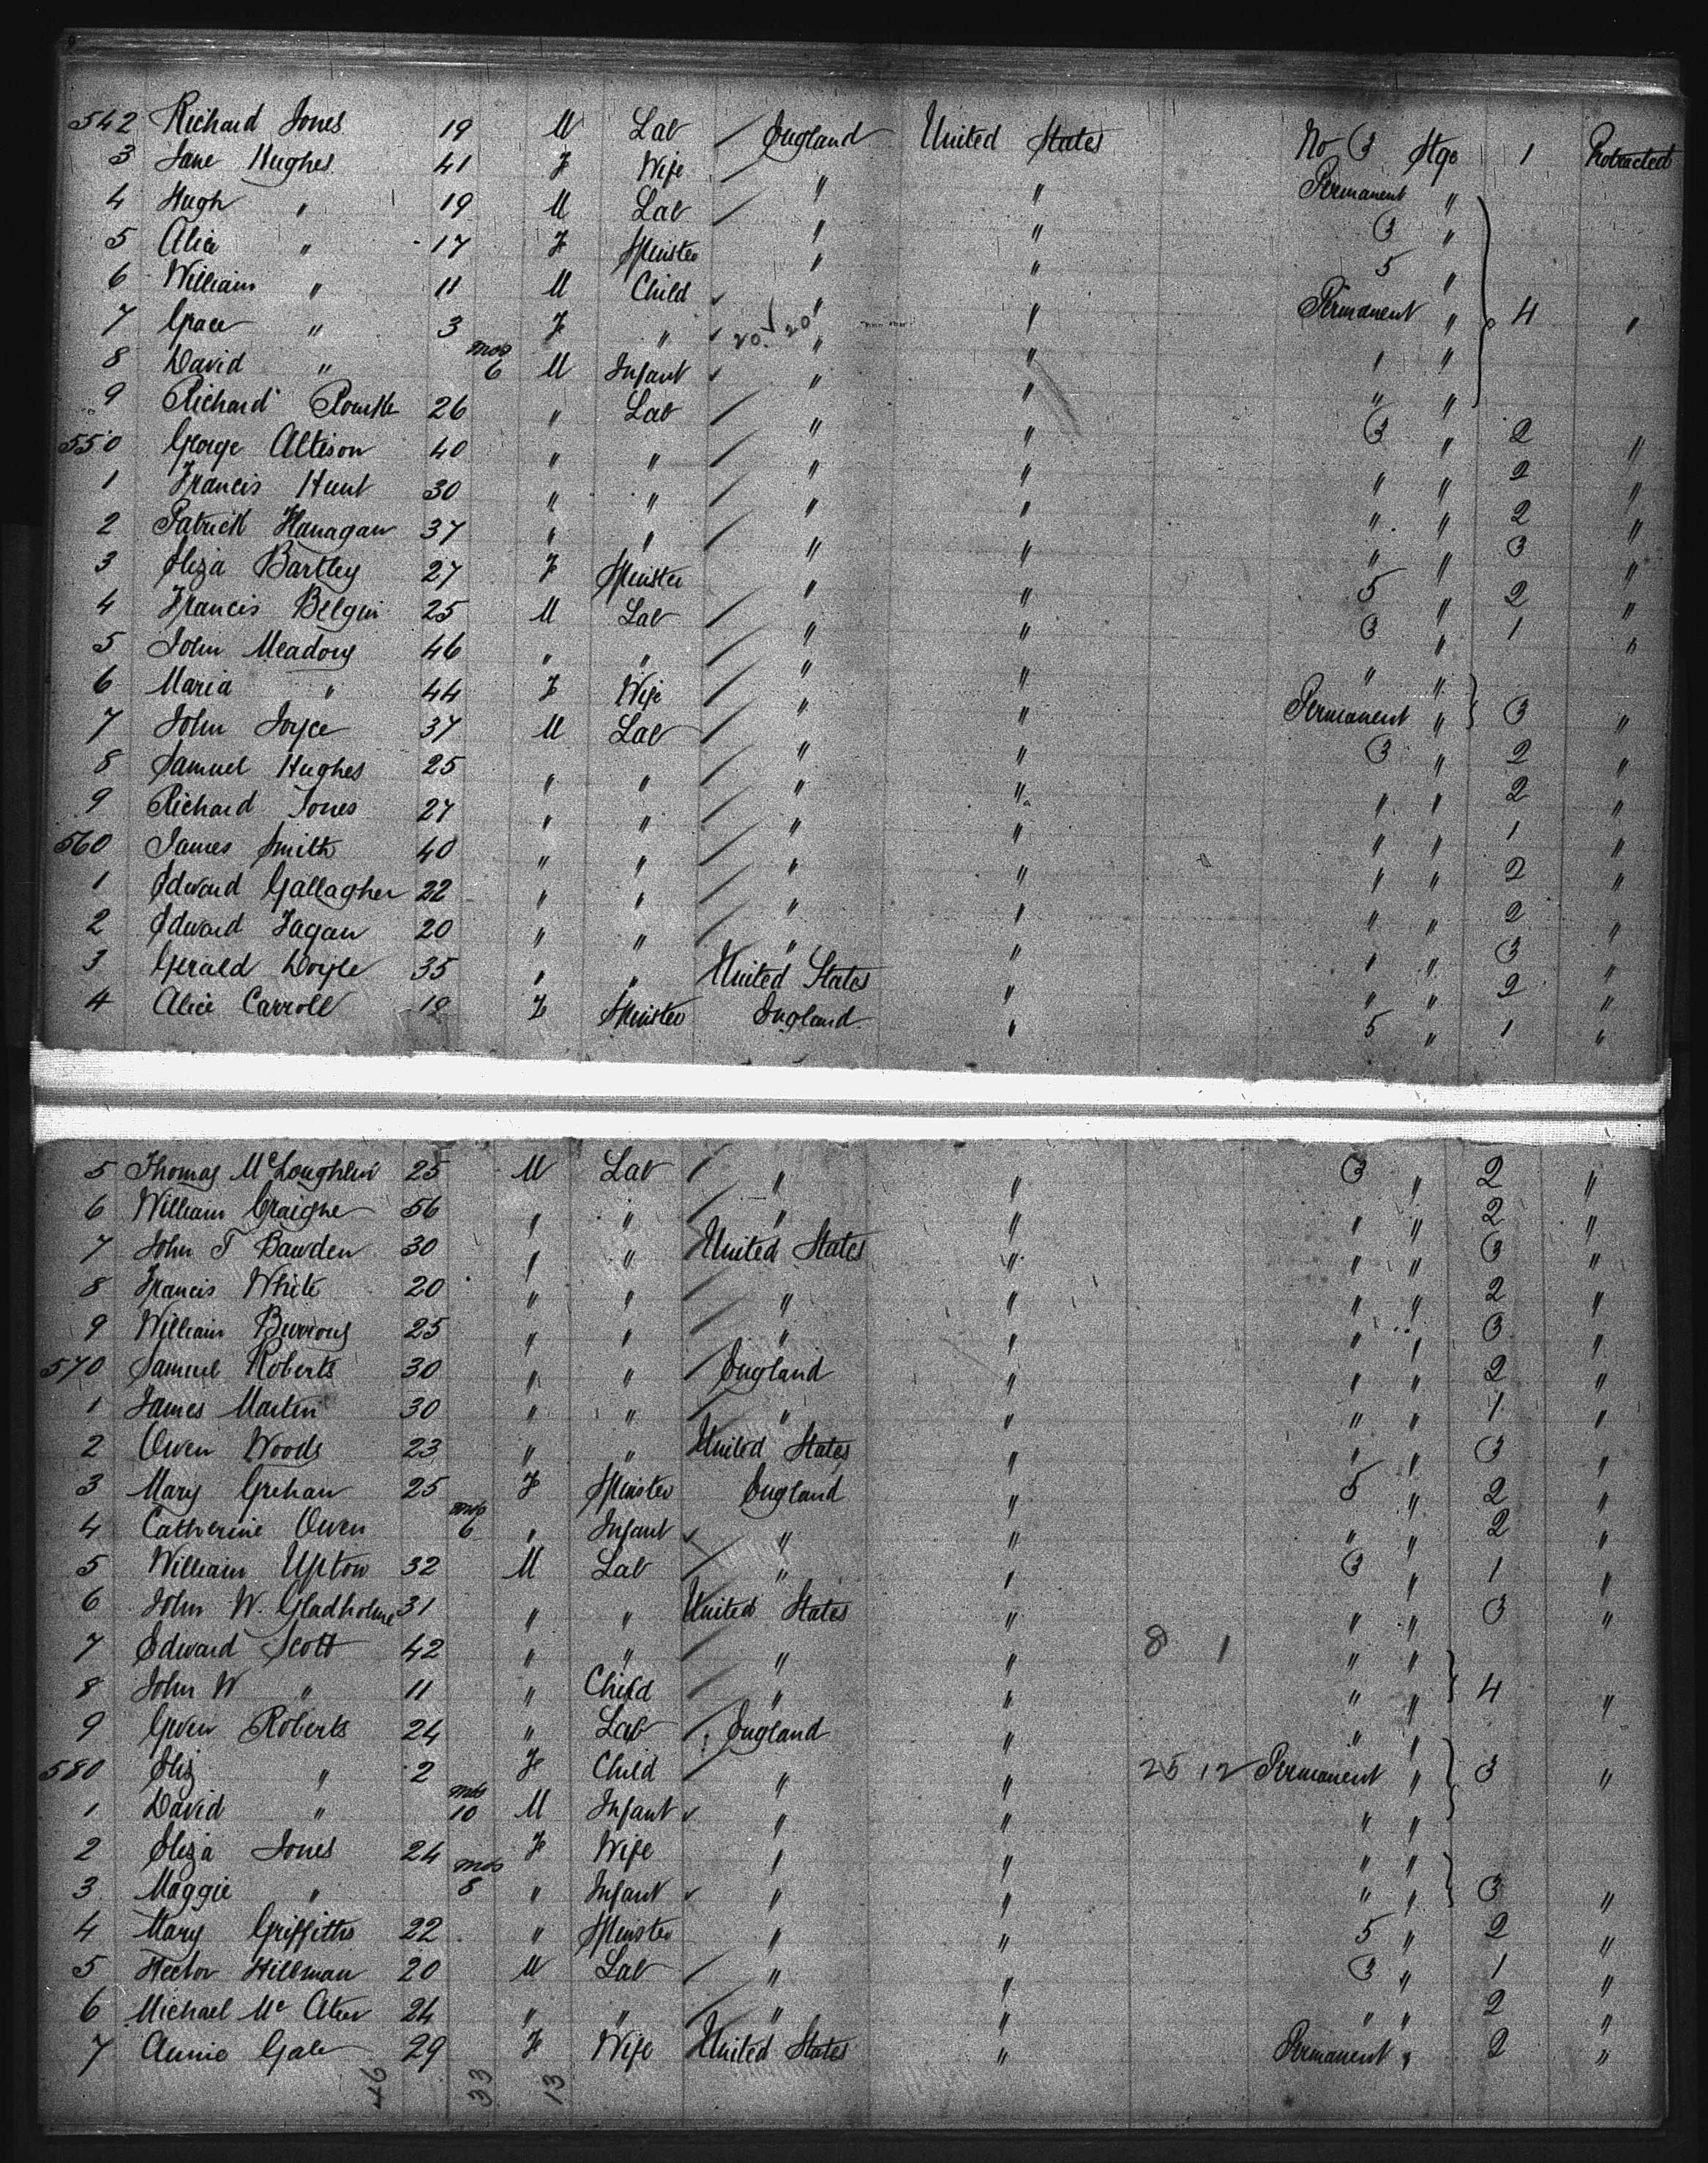 542 Richard Jones 19 M Lab / England United States No 3 Stge 1 Protracted
3 Jane Hughes 41 F Wife / " " Permanent "
4 Hugh " 19 M Lab / " " 3 "
5 Alice " 17 F Spinster " " 5 "
6 William " 11 M Child ✓ " " Permanent " 4 "
7 Grace " 3 F " ✓ 20 ✓ 20 " " " "
8 David " mos 6 M Infant ✓ " " " "
9 Richard 26 " Lab / " " 3 " 2 "
550 George Altison 40 " " / " " " " 2 "
1 Francis Hunt 30 " " / " " " " 2 "
2 Patrick Flanagan 37 " " / " " " " 3 "
3 Eliza Bartley 27 F Spinster " " 5 " 2 "
4 Francis Belgin 25 M Lab / " " 3 " 1 "
5 John Meadows 46 " " / " " " "
6 Maria " 44 F Wife / " " Permanent " 3 "
7 John Joyce 37 M Lab / " " 3 " 2 "
8 Samuel Hughes 25 " " / " " " " 2 "
9 Richard Jones 27 " " / " " " " 1 "
560 James Smith 40 " " / " " " " 2 "
1 Edward Gallagher 22 " " / " " " " 2 "
2 Edward Fagan 20 " " / " " " " 3 "
3 Gerald Doyle 35 " " United States " " " 2 "
4 Alice Carroll 18 F Spinster England " 5 " 1 "
5 Thomas McLoughlin 25 M Lab / " " 3 " 2 "
6 William Craighe 56 " " / " " " " 2 "
7 John T Bawden 30 " " United States " " " 3 "
8 Francis White 20 " " / " " " " 2 "
9 William Burrows 25 " " / " " " " 3 "
570 Samuel Roberts 30 " " / England " " " 2 "
1 James Martin 30 " " / " " " " 1 "
2 Owen Woods 23 " " United States " " " 3 "
3 Mary Grehan 25 F Spinster England " 5 " 2 "
4 Catherine Owen mos 6 " Infant ✓ " " " " 2 "
5 William Upton 32 M Lab / " " 3 " 1 "
6 John W. Gladholme 31 " " United States " " " 3 "
7 Edward Scott 42 " " / " " 8 1 " "
8 John W " 11 " Child / " " " " 4 "
9 Owen Roberts 24 " Lab / England " " "
580 Eliz " 2 F Child / " " 25 12 Permanent " 3 "
1 David " mos 10 M Infant ✓ " " " "
2 Eliza Jones 24 F Wife " " " "
3 Maggie " mos 8 " Infant ✓ " " " " 3 "
4 Mary Griffiths 22 " Spinster " " 5 " 2 "
5 Hector Hillman 20 M Lab / " " 3 " 1 "
6 Michael Mc Ateer 24 " " / " " " " 2 "
7 Annie Gale 29 F Wife United States " Permanent " 2 "
46 33 13